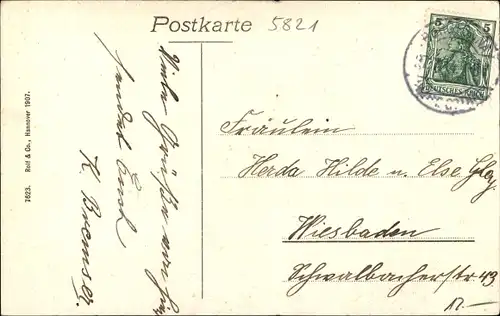 Postkarte 5821
5 5
DEUTSCHES REICH
Viele Grüße von hier
sendet Euch
K. Bremser.
Fräulein
Herda Hilde u. Else
Wiesbaden
Schwalbacherstr 43
7623. Roll & Co., Hannover 1907.